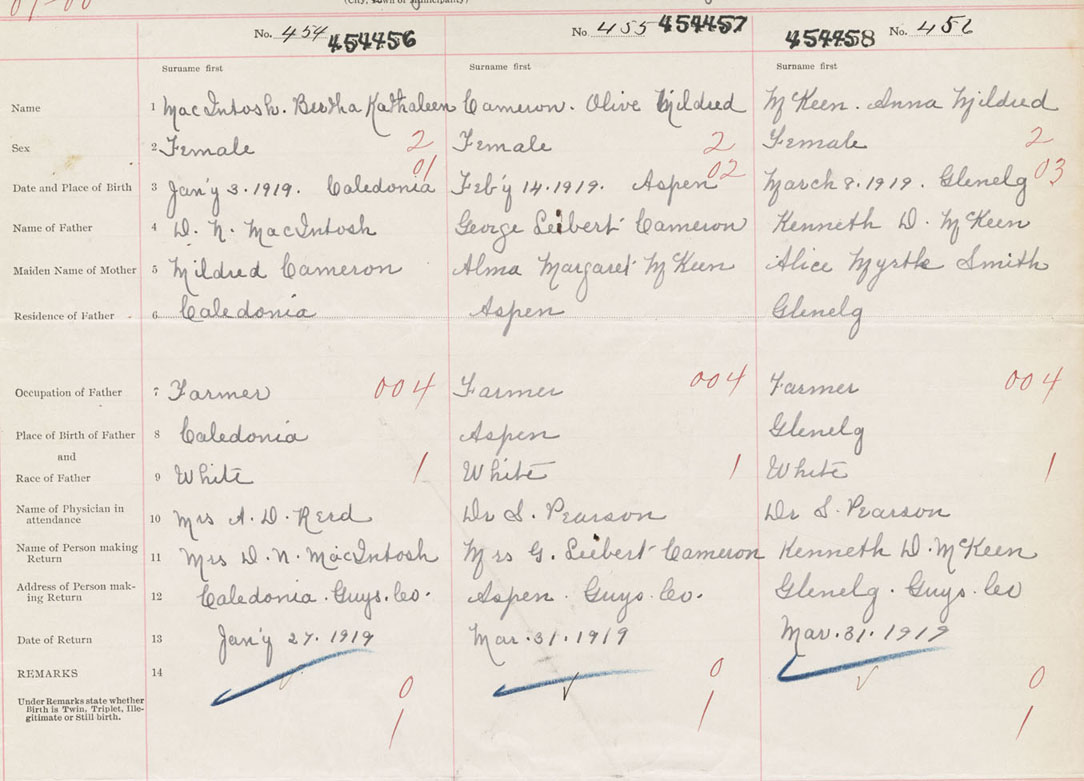 01-00
(City, Town or Municipality)
No. 454 454456 No. 455 454457 454458 No. 456
Surname first Surname first Surname first
Name 1 MacIntosh. Bertha Kathaleen Cameron. Olive Mildred McKeen. Anna Mildred
Sex 2 Female 2 Female 2 Female 2
01 02 03
Date and Place of Birth 3 Jan'y 3. 1919. Caledonia Feb'y 14. 1919. Aspen March 8. 1919. Glenelg
Name of Father 4 D. N. MacIntosh George Leibert Cameron Kenneth D. McKeen
Maiden Name of Mother 5 Mildred Cameron Alma Margaret McKeen Alice Myrtle Smith
Residence of Father 6 Caledonia Aspen Glenelg
Occupation of Father 7 Farmer 004 Farmer 004 Farmer 004
Place of Birth of Father 8 Caledonia Aspen Glenelg
and
Race of Father 9 White 1 White 1 White 1
Name of Physician in
attendance 10 Mrs A. D. Dr S. Pearson Dr S. Pearson
Name of Person making
Return 11 Mrs D. N. MacIntosh Mrs G. Leibert Cameron Kenneth D. McKeen
Address of Person mak-
ing Return 12 Caledonia. Guys. Co. Aspen. Guys. Co. Glenelg. Guys. Co
Date of Return 13 Jan'y 27. 1919 Mar. 31. 1919 Mar. 31. 1919
REMARKS 14
0 0 0
Under Remarks state whether
Birth is Twin, Triplet, Ille-
gitimate or Still birth.
1 1 1